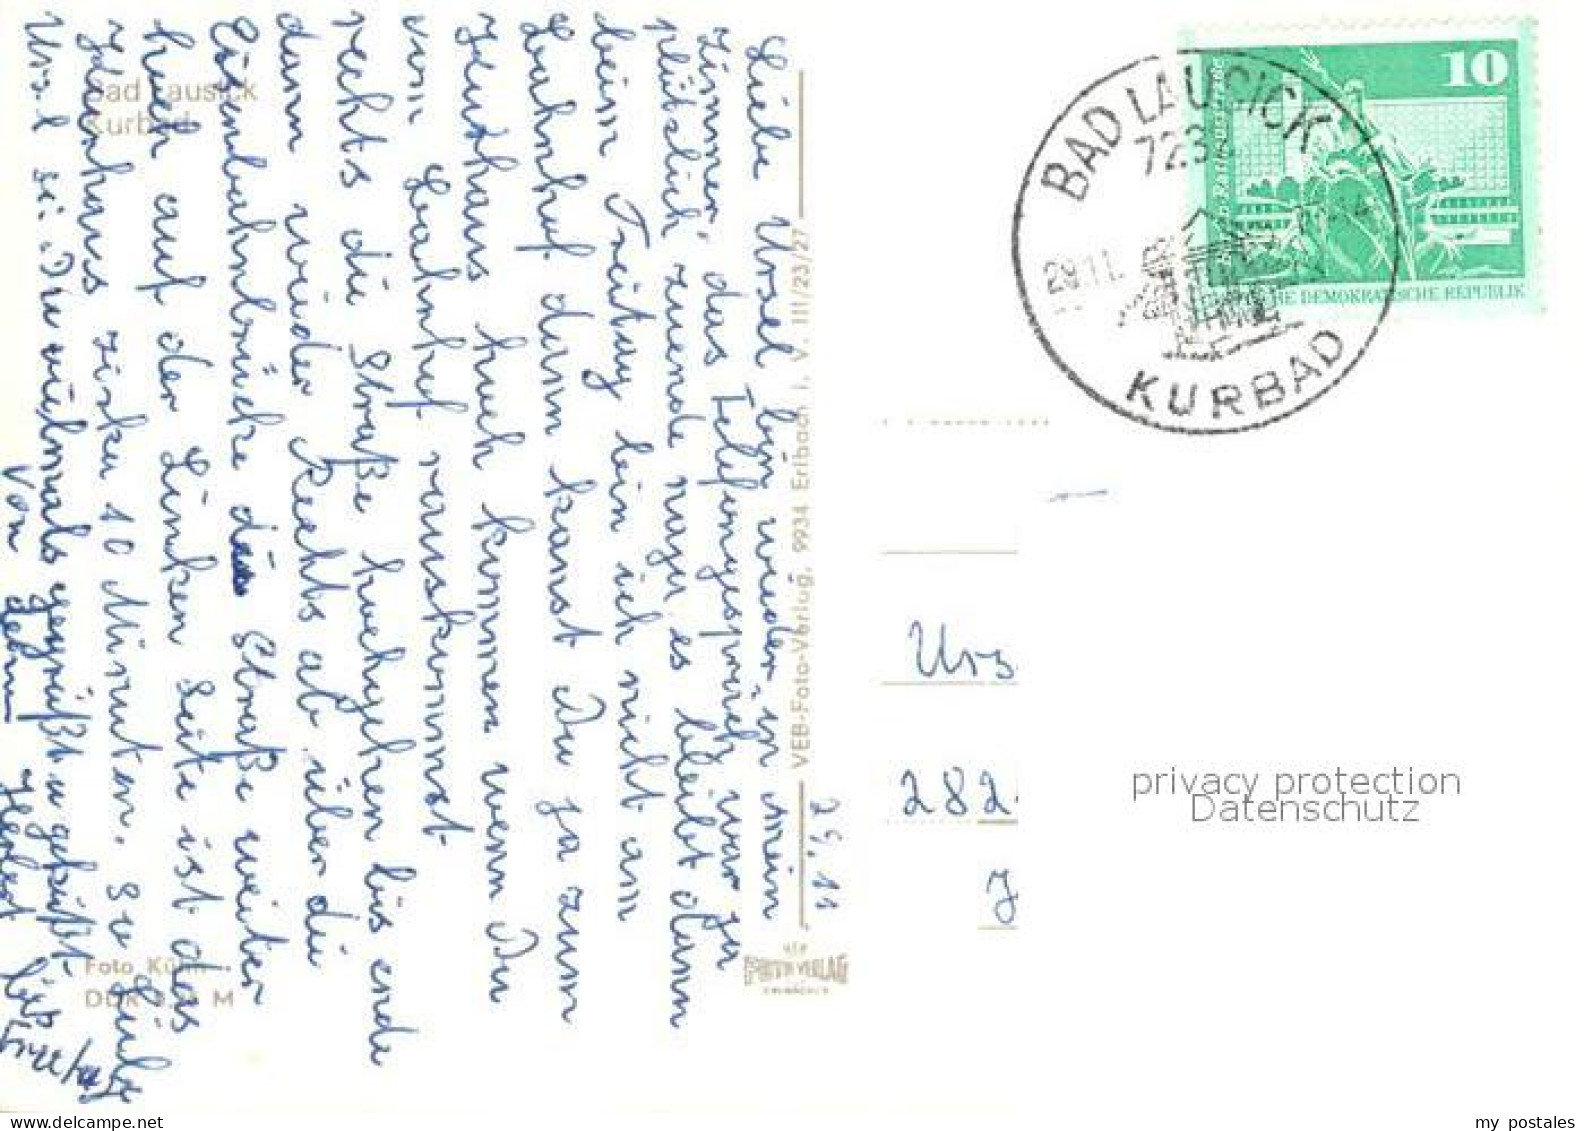 Bad Lausick
Kurbad
29.11
Liebe Ursel bin wieder in mein
Zimmer, das Telefongespräch war ja
plötzlich zuende naja es bleibt dann
beim Freitag bin ich nicht am
Bahnhof dann kanst Du ja zum
Kurhaus hoch kommen wenn Du
vom Bahnhof rauskommst
rechts die Straße hochgehen bis ende
dann wieder Rechts ab über die
Eisenbahnbrücke die Straße weiter
hoch auf der Linken Seite ist das
Kurhaus zirka 10 Minuten. So Liebe
Ursel sei Du vielmals gegrüßt u geküßt
von Dein Herbert
Foto Kühn
DDR M
VEB-Foto-Verlag, 9934 Erlbach i. V. III/23/27
FOTO VERLAG
ERLBACH
BAD LAUSICK
723
29.11.
KURBAD
10
DEMOKRATISCHE REPUBLIK
Urs
282
J
privacy protection
Datenschutz
my postales